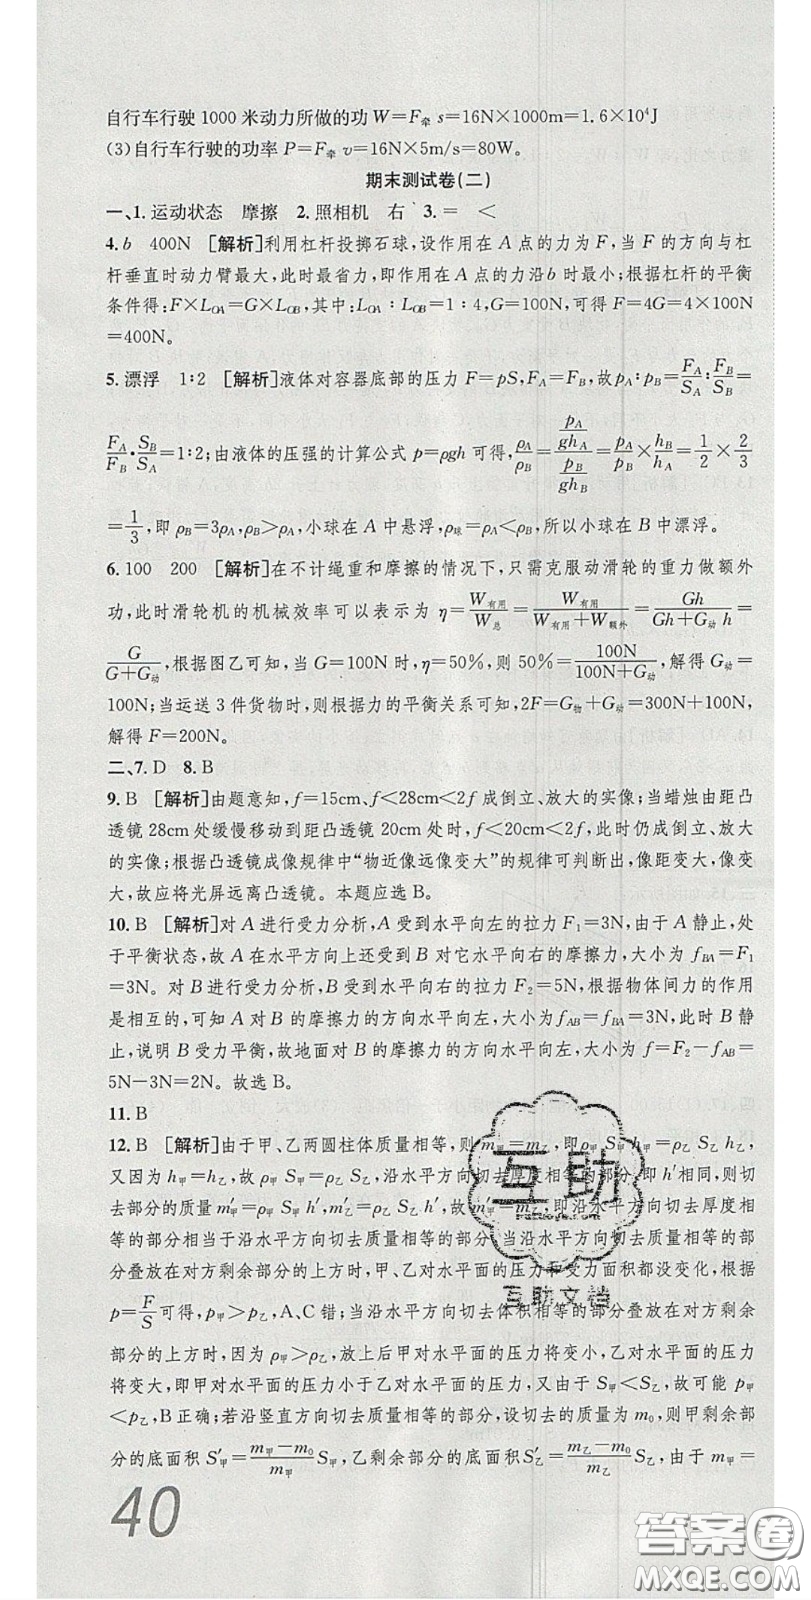 自行车行驶1000米动力所做的功W=F牵 s=16N×1000m=1.6×10⁴J
(3)自行车行驶的功率P=F牵 v=16N×5m/s=80W。
期末测试卷(二)
一、1.运动状态 摩擦 2.照相机 右 3.= <
4.b 400N [解析]利用杠杆投掷石球,设作用在A点的力为F,当F的方向与杠
杆垂直时动力臂最大,此时最省力,即作用在A点的力沿b时最小;根据杠杆的平衡
条件得:F×L_OA=G×L_OB,其中:L_OA∶L_OB=1∶4,G=100N,可得F=4G=4×100N
=400N。
5.漂浮 1∶2 [解析]液体对容器底部的压力F=pS,F_A=F_B,故p_A∶p_B=F_A/S_A∶F_B/S_B=
F_A/F_B·S_B/S_A=1∶2;由液体的压强的计算公式p=ρgh可得,ρ_A/ρ_B=(p_A/gh_A)/(p_B/gh_B)=p_A/p_B×h_B/h_A=1/2×2/3
=1/3,即ρ_B=3ρ_A,ρ_B>ρ_A,小球在A中悬浮,ρ球=ρ_A<ρ_B,所以小球在B中漂浮。
6.100 200 [解析]在不计绳重和摩擦的情况下,只需克服动滑轮的重力做额外
功,此时滑轮机的机械效率可以表示为η=W有用/W总=W有用/(W有用+W额外)=Gh/(Gh+G动 h)=
G/(G+G动),根据图乙可知,当G=100N时,η=50%,则50%=100N/(100N+G动),解得G动=
100N;当运送3件货物时,则根据力的平衡关系可知,2F=G物+G动=300N+100N,
解得F=200N。
二、7.D 8.B
9.B [解析]由题意知,f=15cm、f<28cm<2f成倒立、放大的实像;当蜡烛由距凸
透镜28cm处缓慢移动到距凸透镜20cm处时,f<20cm<2f,此时仍成倒立、放大
的实像;根据凸透镜成像规律中“物近像远像变大”的规律可判断出,像距变大,像变
大,故应将光屏远离凸透镜。本题应选B。
10.B [解析]对A进行受力分析,A受到水平向左的拉力F₁=3N,由于A静止,处
于平衡状态,故A在水平方向上还受到B对它水平向右的摩擦力,大小为f_BA=F₁
=3N。对B进行受力分析,B受到水平向右的拉力F₂=5N,根据物体间力的作用
是相互的,可知A对B的摩擦力的方向水平向左,大小为f_AB=f_BA=3N,此时B静
止,说明B受力平衡,故地面对B的摩擦力的方向水平向左,大小为f=F₂-f_AB=
5N-3N=2N。故选B。
11.B
12.B [解析]由于甲、乙两圆柱体质量相等,则m甲=m乙,即ρ甲 S甲 h甲=ρ乙 S乙 h乙,
又因为h甲=h乙,故ρ甲 S甲=ρ乙 S乙,沿水平方向切去厚度相等的部分,即h′相同,则切
去的质量m甲′=ρ甲 S甲 h′,m乙′=ρ乙 S乙 h′,故m甲′=m乙′,即沿水平方向切去厚度相
等的部分相当于沿水平方向切去质量相等的部分;当沿水平方向切去质量相等的
部分叠放在对方剩余部分的上方时,甲、乙对水平面的压力和受力面积都没变化,根据
p=F/S可得,p甲>p乙,A、C错;当沿水平方向切去体积相等的部分叠放在对方剩余
部分的上方时,因为ρ甲>ρ乙,故最后甲对水平面的压力将变小,乙对水平面的压力
将变大,即甲对水平面的压力小于乙对水平面的压力,又由于S甲<S乙,故可能p甲
<p乙,B正确;若沿竖直方向切去质量相等的部分,设切去的质量为m₀,则甲剩余部
分的底面积S甲′=(m甲-m₀)/m甲 S甲,乙剩余部分的底面积S乙′=(m乙-m₀)/m乙 S乙,由于m甲=
40
互助
互助文档
答案圈
MXQE.COM